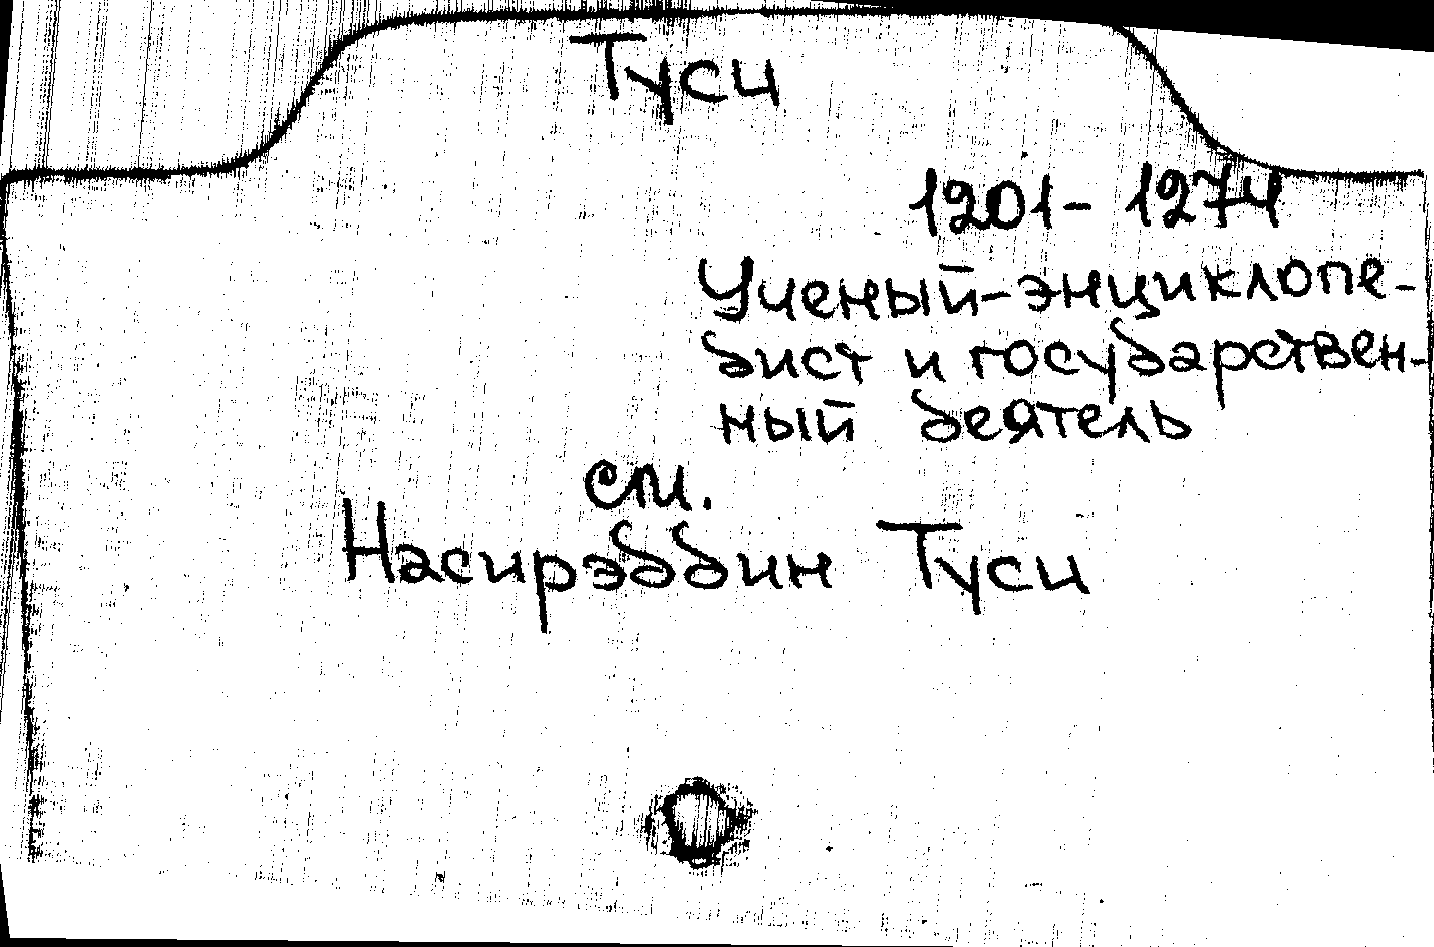 Туси
1201-1274
Ученый-энциклопе-
дист и государствен-
ный деятель
см.
Насирэддин Туси